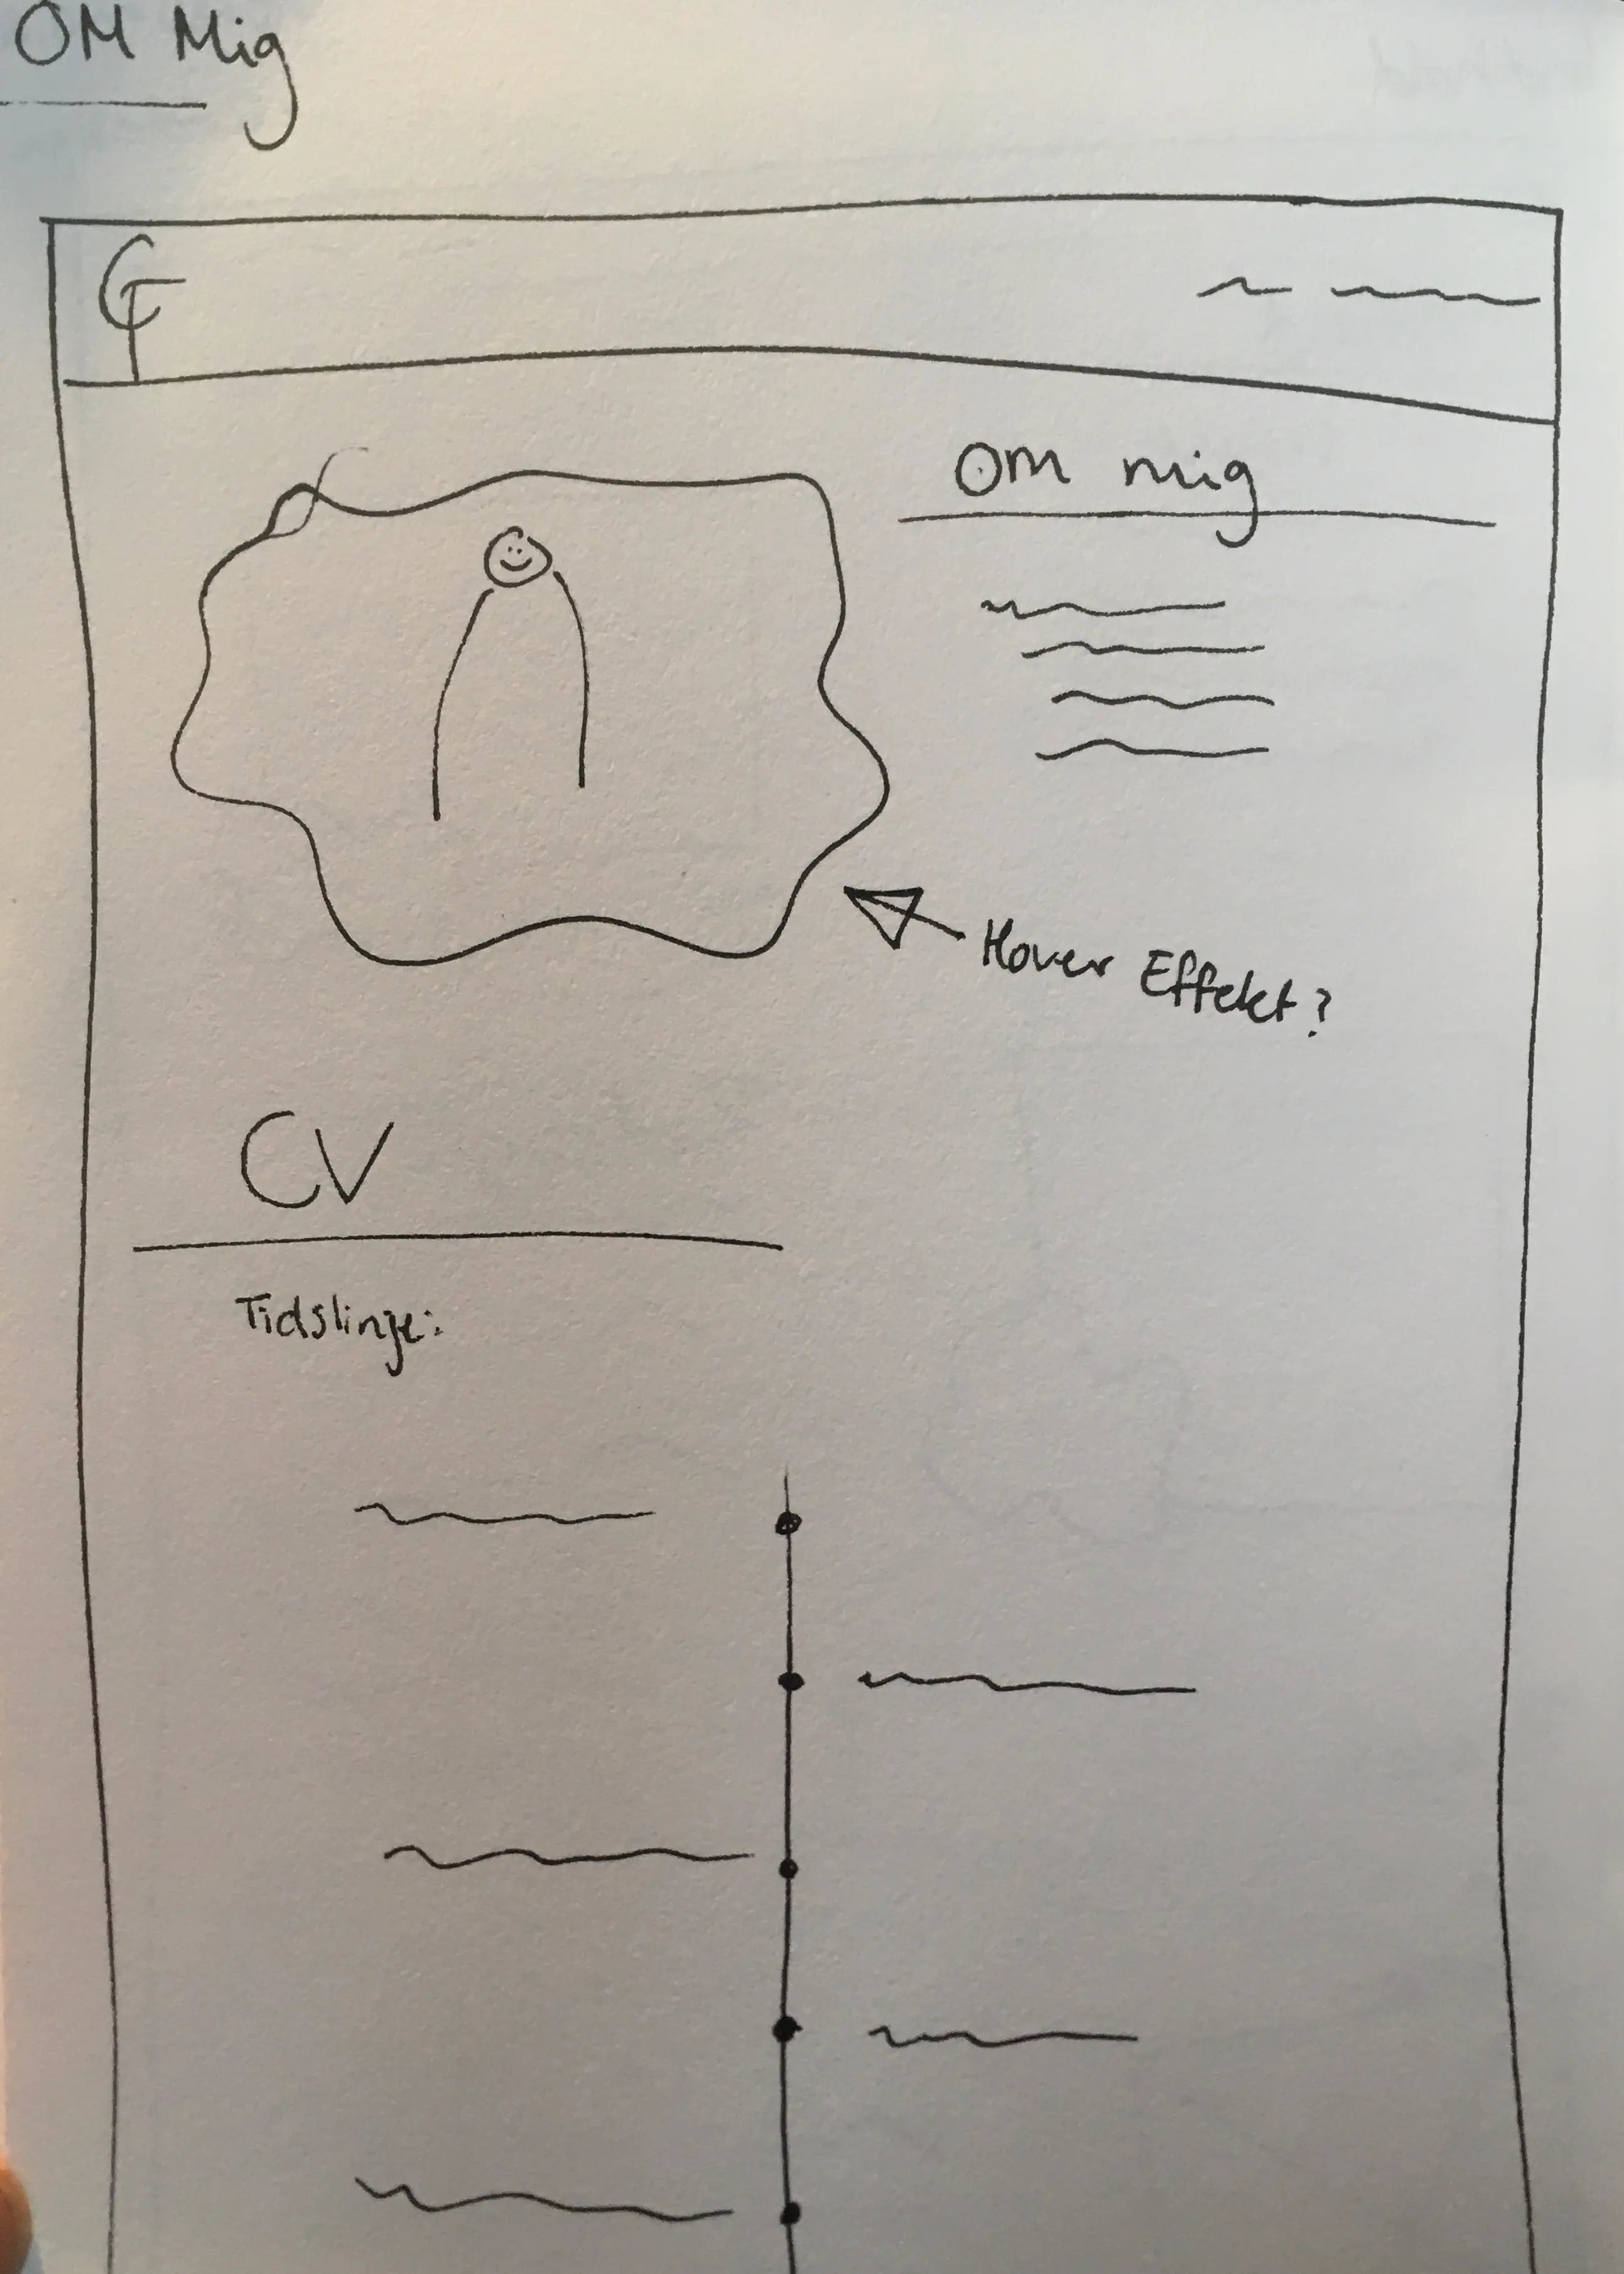 OM Mig
CT
Om mig
Hover Effekt?
CV
Tidslinje: